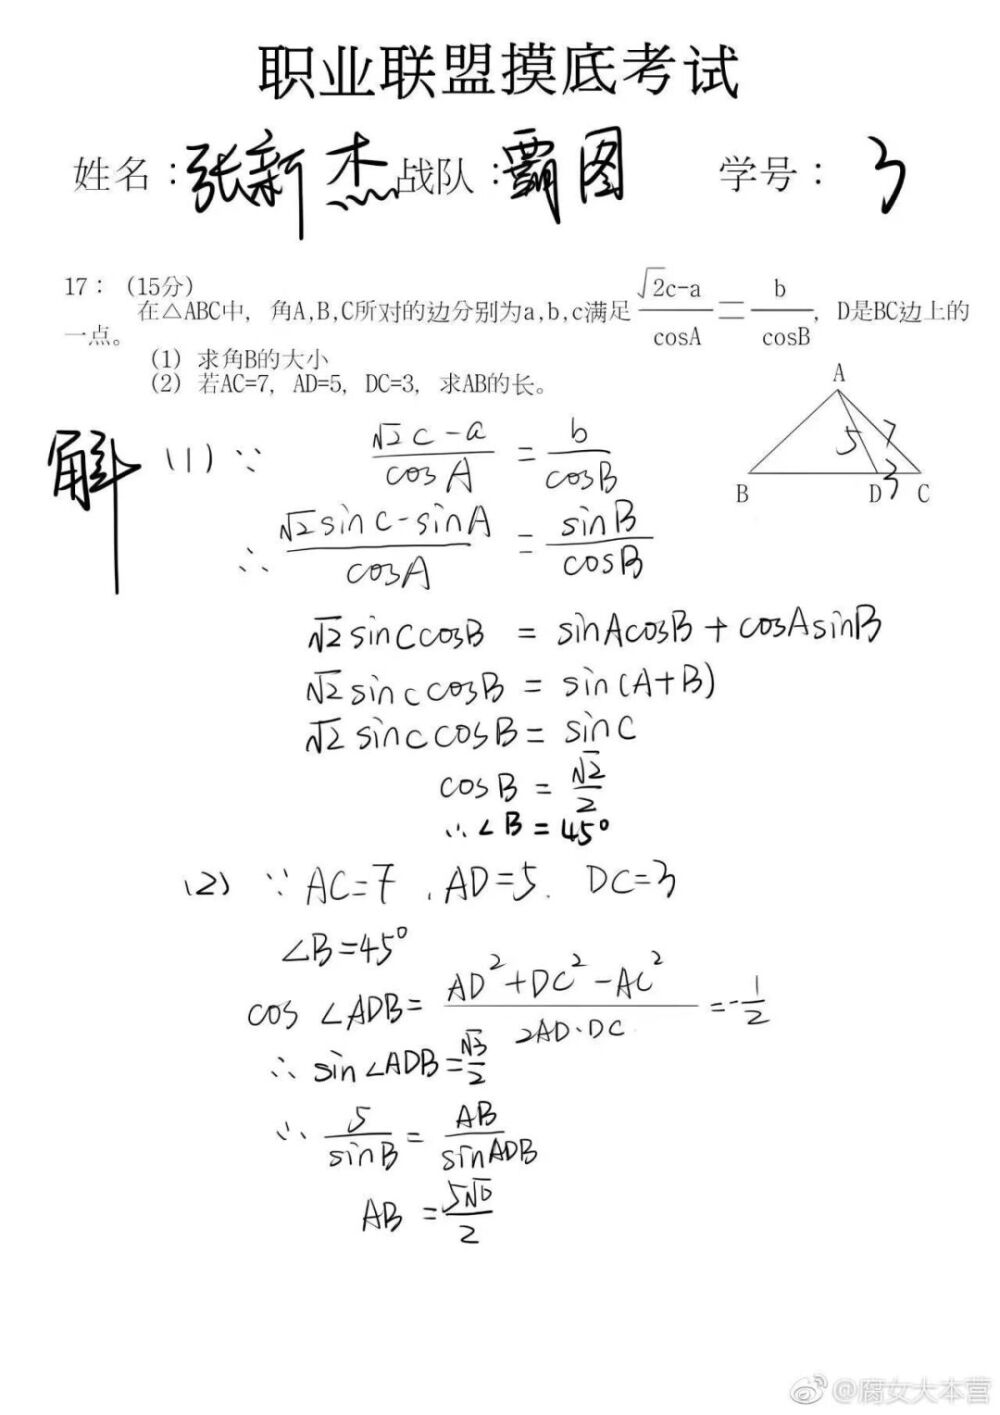 职业联盟摸底考试
姓名：张新杰 战队：霸图 学号：3
17：（15分）
在△ABC中，角A,B,C所对的边分别为a,b,c满足 (√2c-a)/cosA = b/cosB ，D是BC边上的
一点。
(1) 求角B的大小
(2) 若AC=7，AD=5，DC=3，求AB的长。
A
5 7
B D 3 C
解 (1) ∵ (√2c-a)/cosA = b/cosB
∴ (√2sinC-sinA)/cosA = sinB/cosB
√2sinCcosB = sinAcosB+cosAsinB
√2sinCcosB = sin(A+B)
√2sinCcosB = sinC
cosB = √2/2
∴∠B=45°
(2) ∵ AC=7，AD=5．DC=3
∠B=45°
cos∠ADB= (AD²+DC²-AC²)/(2AD·DC) =-1/2
∴ sin∠ADB=√3/2
∴ 5/sinB = AB/sinADB
AB = 5√6/2
@腐女大本营